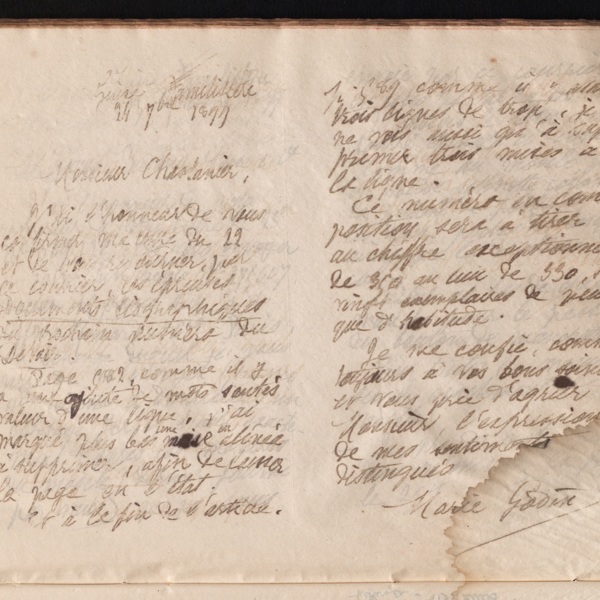 Guise Familistère
24 7bre 1899
Monsieur Charlanier,
J'ai l'honneur de vous
confirmer ma carte du 22
et de
ce courrier, les épreuves
documents biographiques
du prochain numéro du
Devoir.
Page 982, comme il y
a par suite de mots sautés
valeur d'une ligne, j'ai
marqué plus bas une alinéa
à supprimer, afin de laisser
la page en l'état.
Et à la fin de l'article.
p. comme il y
trois lignes de trop, je
ne vois aussi qu'à
primer trois mises à
la ligne.
Ce numéro en com
position sera à tirer
au chiffre exceptionnel
de 350 au lieu de 330,
vingt exemplaires de plus
que d'habitude.
Je me confie, comme
toujours à vos bons soins
et vous prie d'agréer
Monsieur l'expression
de mes sentiments
distingués
Marie Godin